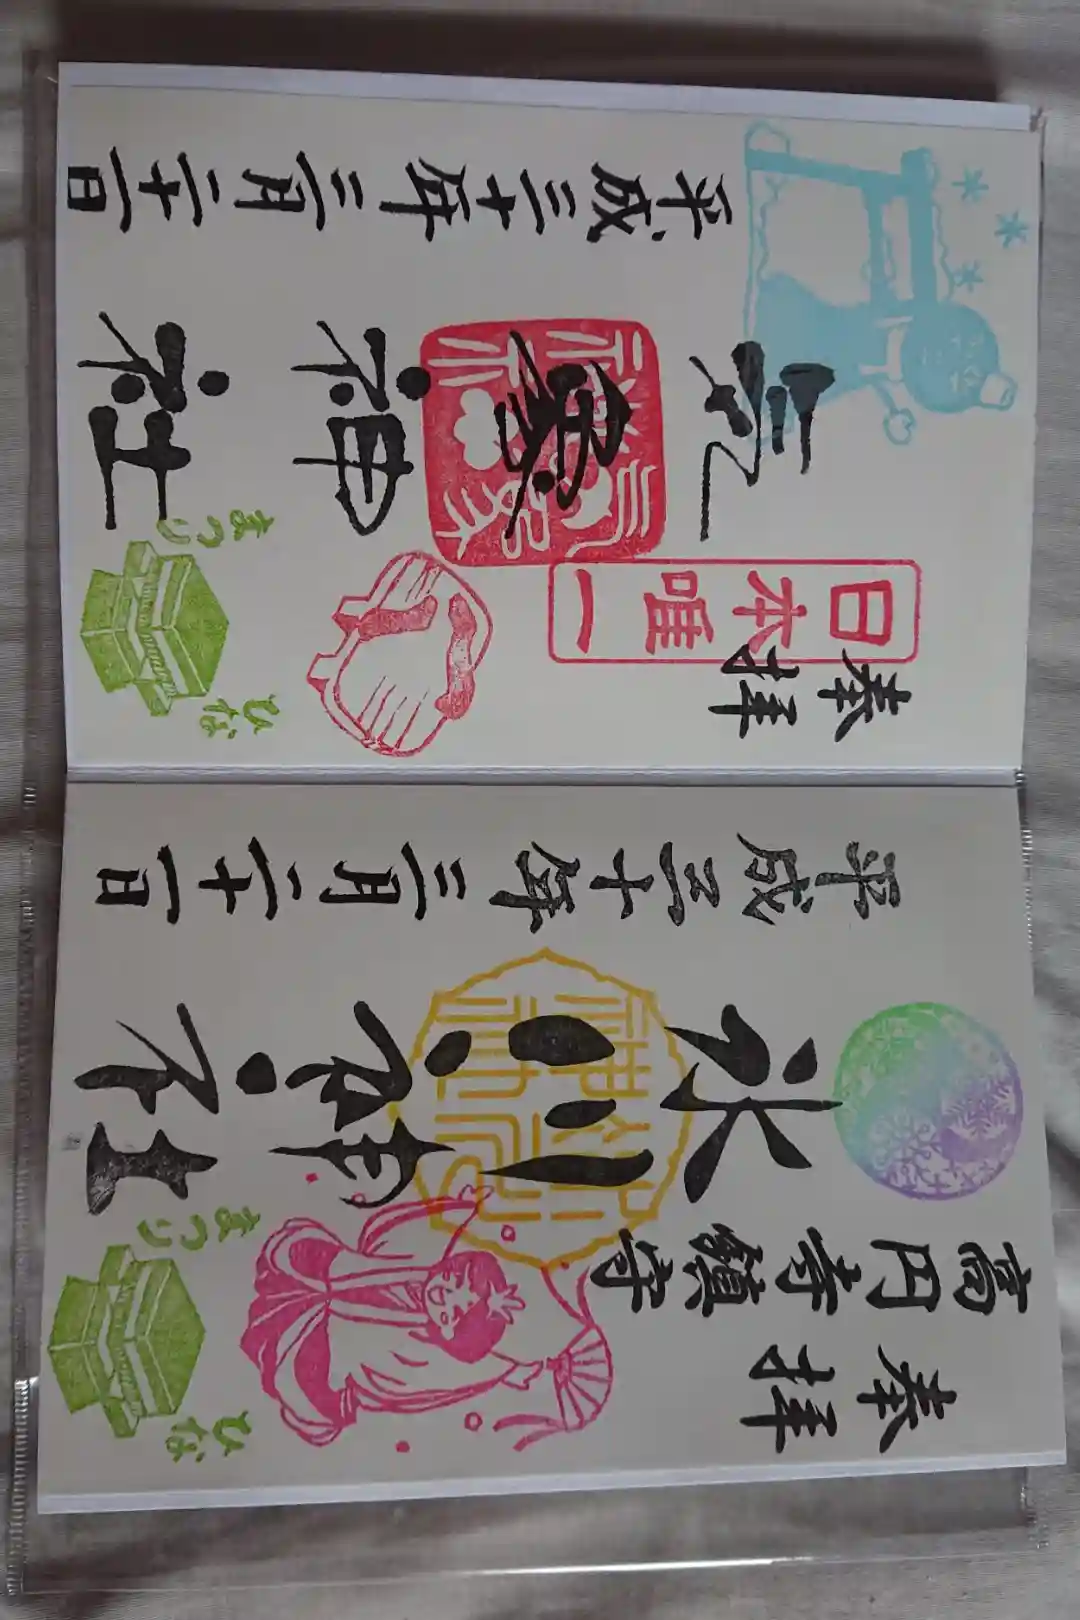 奉拝
高円寺鎮守
氷川神社
平成三十年三月二十一日
ひなまつり
奉拝
日本唯一
気象神社
平成三十年三月二十一日
ひなまつり